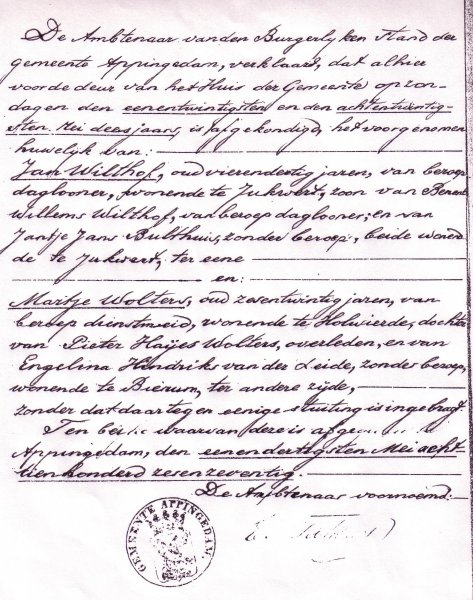 De Ambtenaar van den Burgerlyken Stand der
gemeente Appingedam, verklaard, dat alhier
voor de deur van het Huis der Gemeente op zon-
dagen den eenentwintigsten en den achtentwintig-
sten Mei dees jaars, is afgekondigd, het voorgenomen
huwelijk van:
Jan Wilthof, oud vierendertig jaren, van beroep
daglooner, wonende te Jukwert, zoon van Berend
Willems Wilthof, van beroep daglooner, en van
Jantje Jans Bulthuis, zonder beroep, beide wonen-
de te Jukwert, ter eene
en:
Martje Wolters, oud zesentwintig jaren, van
beroep dienstmeid, wonende te Holwierde, dochter
van Pieter Haijes Wolters, overleden, en van
Engelina Hindriks van der Leide, zonder beroep,
wonende te Bierum, ter andere zijde,
zonder dat daartegen eenige stuiting is ingebragt.
Ten waarvan deze is
Appingedam, den eenendertigsten Mei acht-
tien honderd zesenzeventig.
De Ambtenaar voornoemd:
GEMEENTE APPINGEDAM